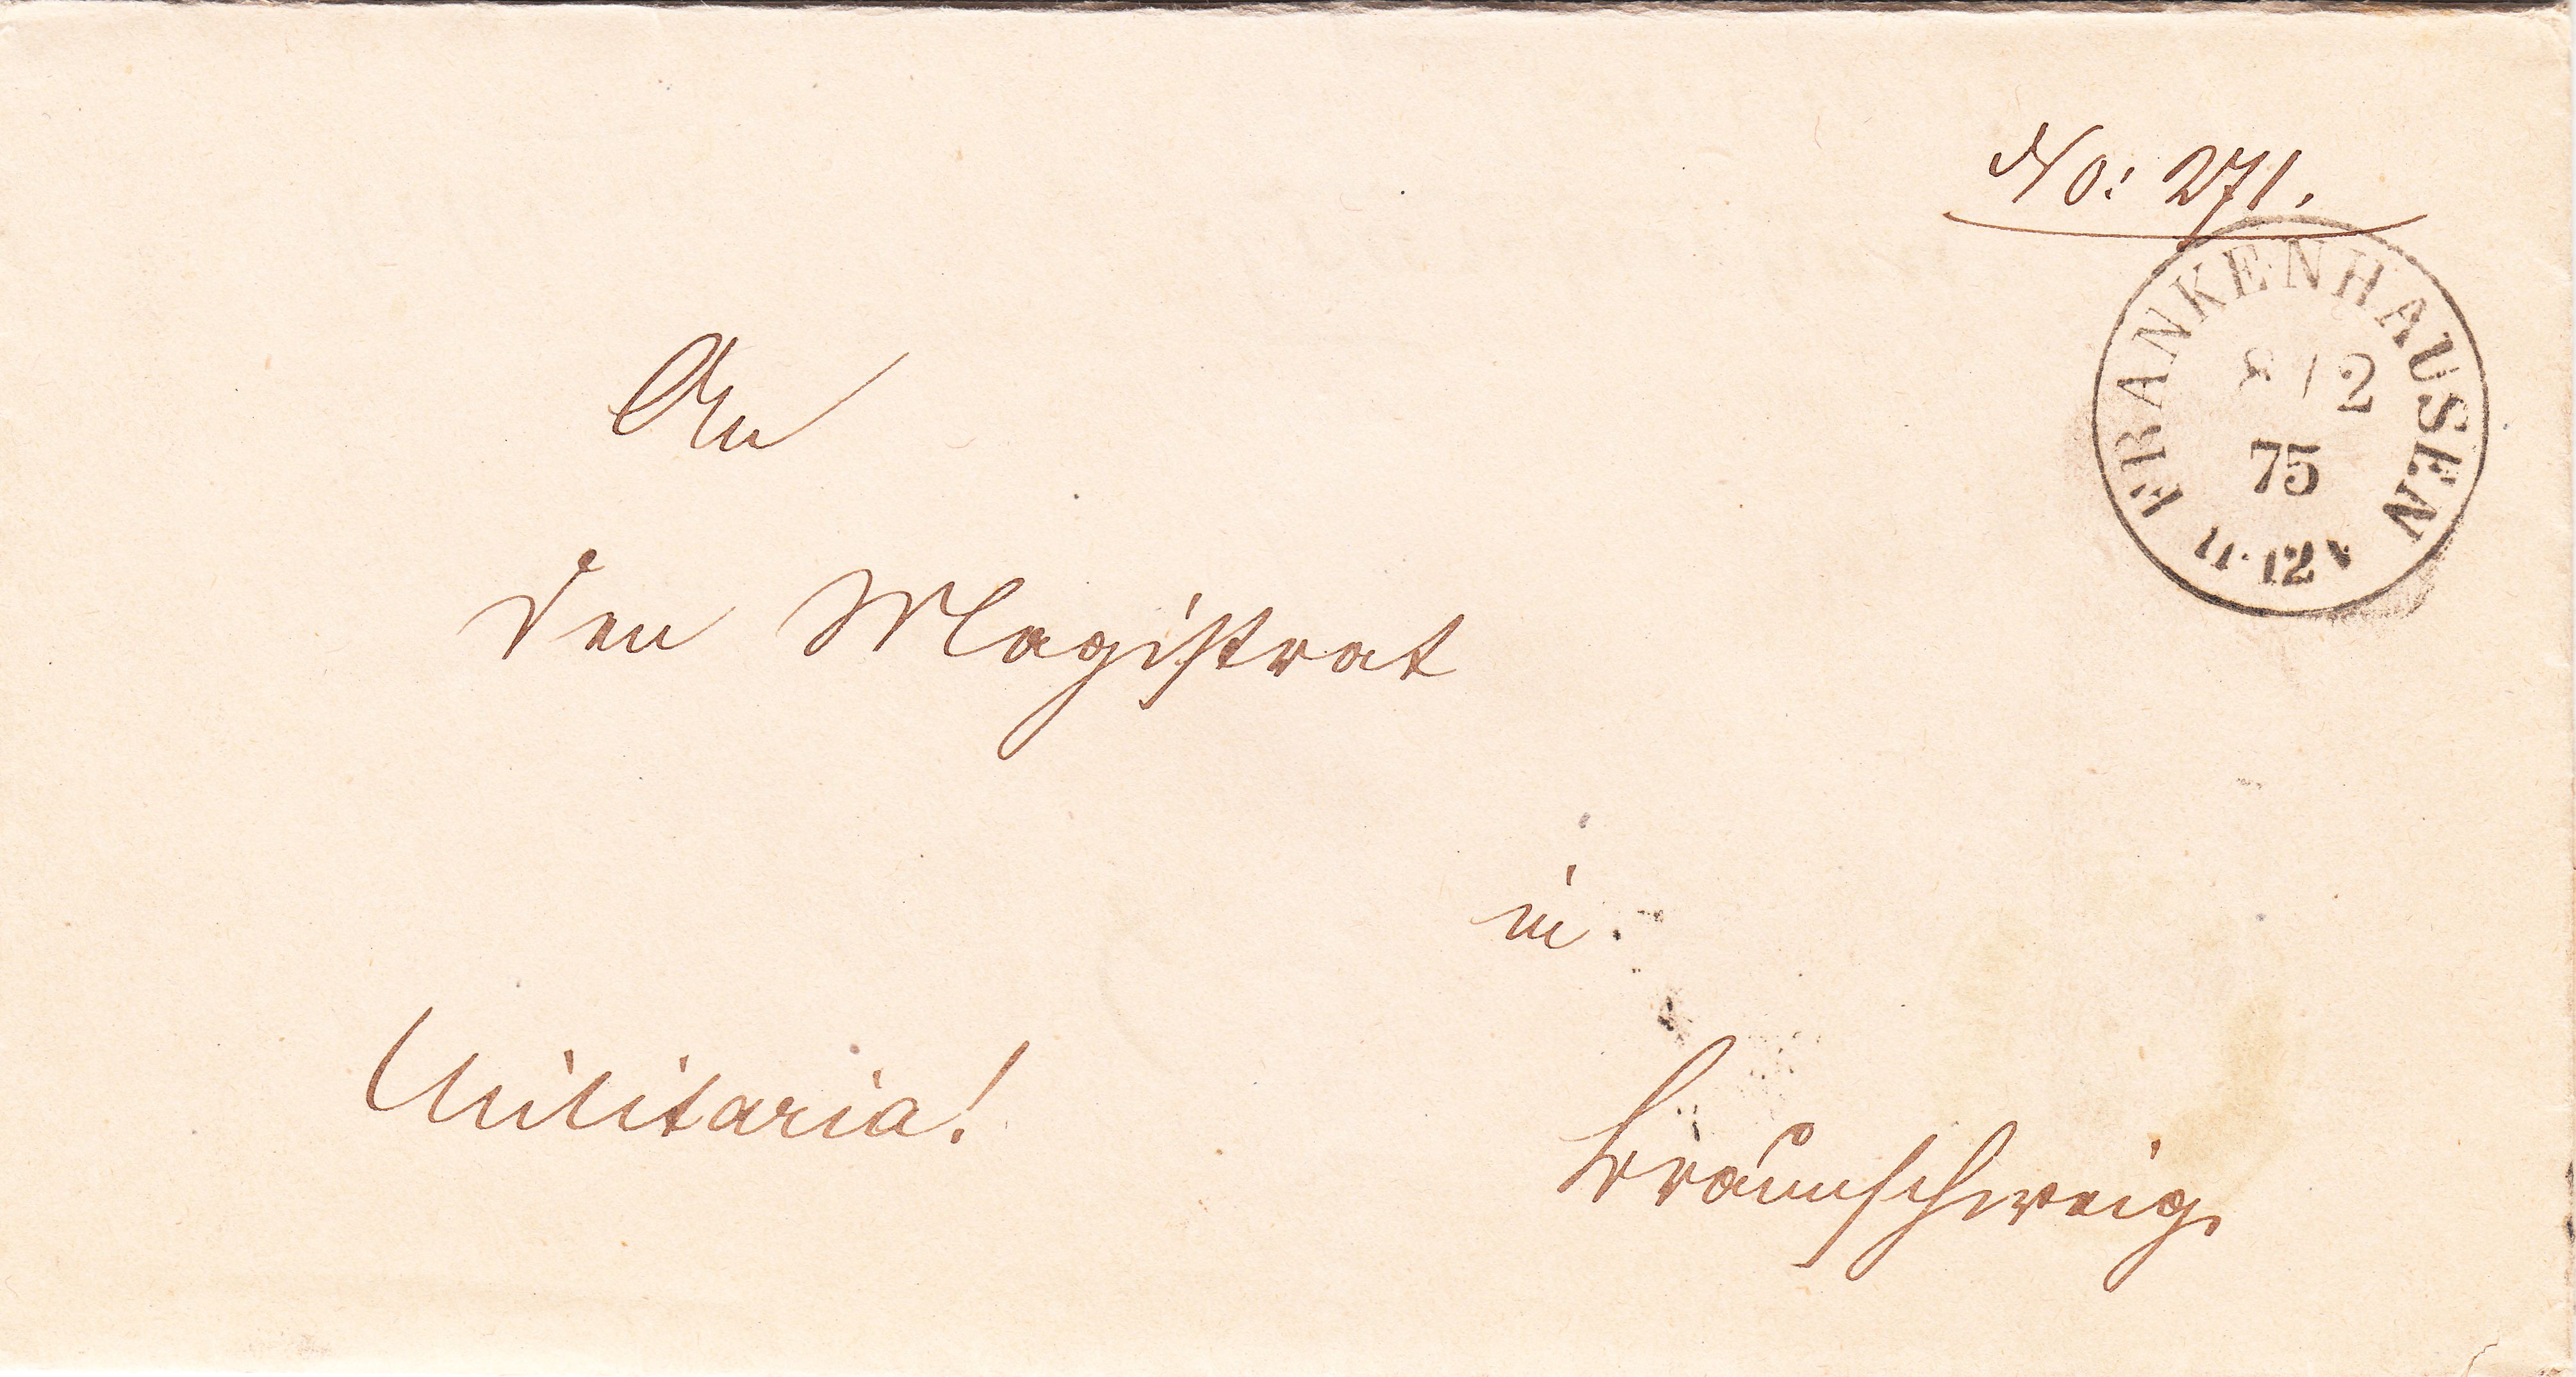 No: 271.
FRANKENHAUSEN
8 / 2
75
11-12 V
An
den Magistrat
in
Militaria!
Braunschweig.